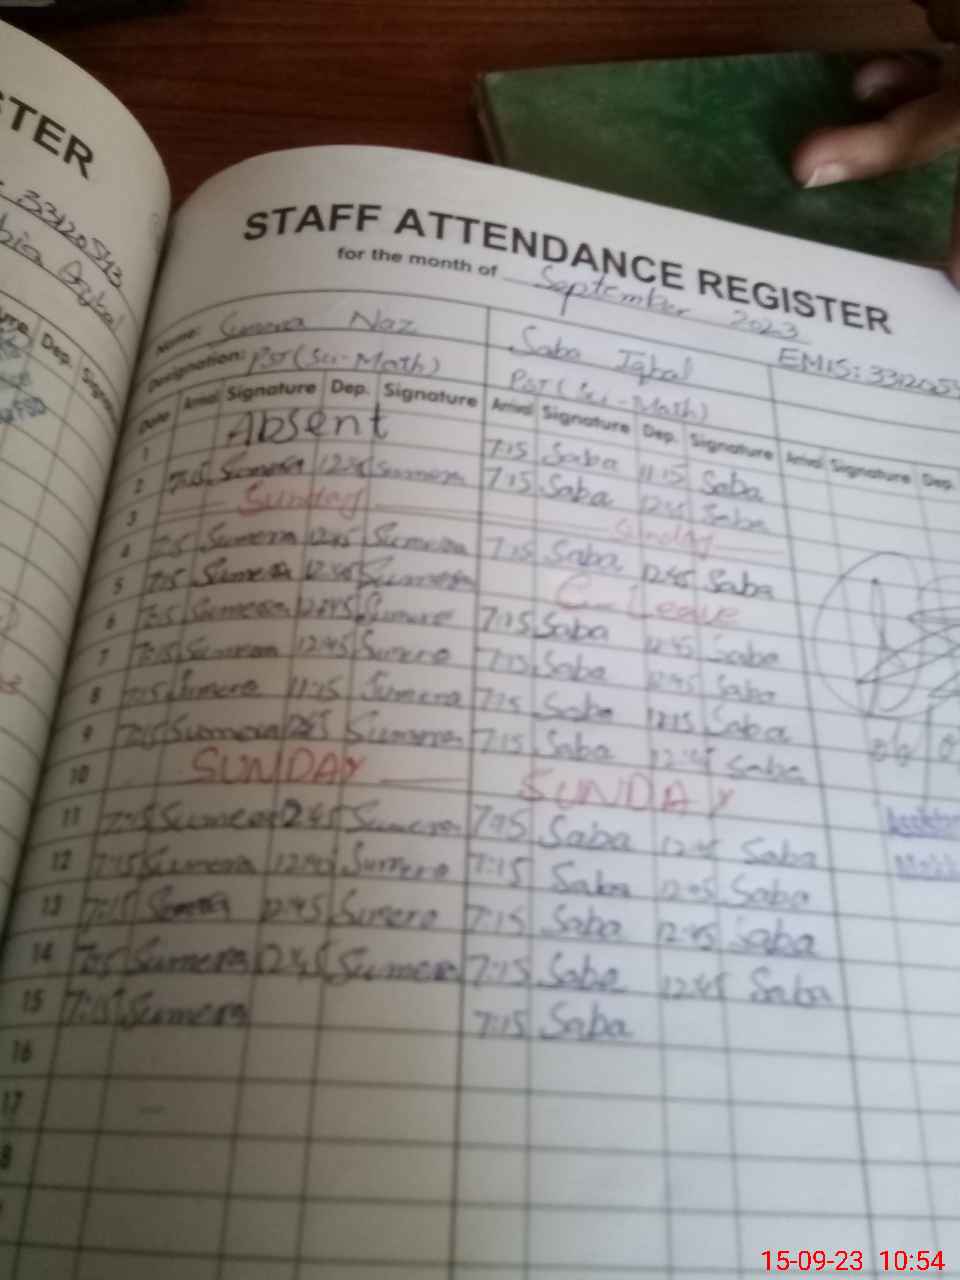 STER
33120543
STAFF ATTENDANCE REGISTER
for the month of September 2023
EMIS: 3312054
Name: Sumera Naz Saba Iqbal
Designation: PST (Sci-Math) PST (Sci-Math)
Dep. Signature
Date Arrival Signature Dep. Signature Arrival Signature Dep. Signature Arrival Signature Dep.
1 Absent 7:15 Saba 11:15 Saba
2 7:15 Sumera 12:45 Sumera 7:15 Saba 12:45 Saba
3 Sunday Sunday
4 7:15 Sumera 12:45 Sumera 7:15 Saba 12:45 Saba
5 7:15 Sumera 12:45 Sumera C-Leave
6 7:15 Sumera 12:45 Sumera 7:15 Saba 12:45 Saba
7 7:15 Sumera 12:45 Sumera 7:15 Saba 12:45 Saba
8 7:15 Sumera 11:15 Sumera 7:15 Saba Saba
9 7:15 Sumera 12:45 Sumera 7:15 Saba 12:45 Saba
10 SUNDAY SUNDAY
11 Sumera 12:45 Sumera Saba 12:45 Saba
12 7:15 Sumera 12:45 Sumera 7:15 Saba Saba
13 7:15 Sumera 12:45 Sumera 7:15 Saba 12:45 Saba
14 7:15 Sumera 12:45 Sumera 7:15 Saba 12:45 Saba
15 7:15 Sumera 7:15 Saba
16
17
8
15-09-23 10:54